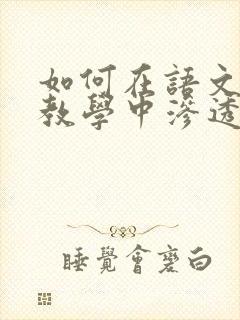 如何在語文
教學中滲透
睡覺會變白